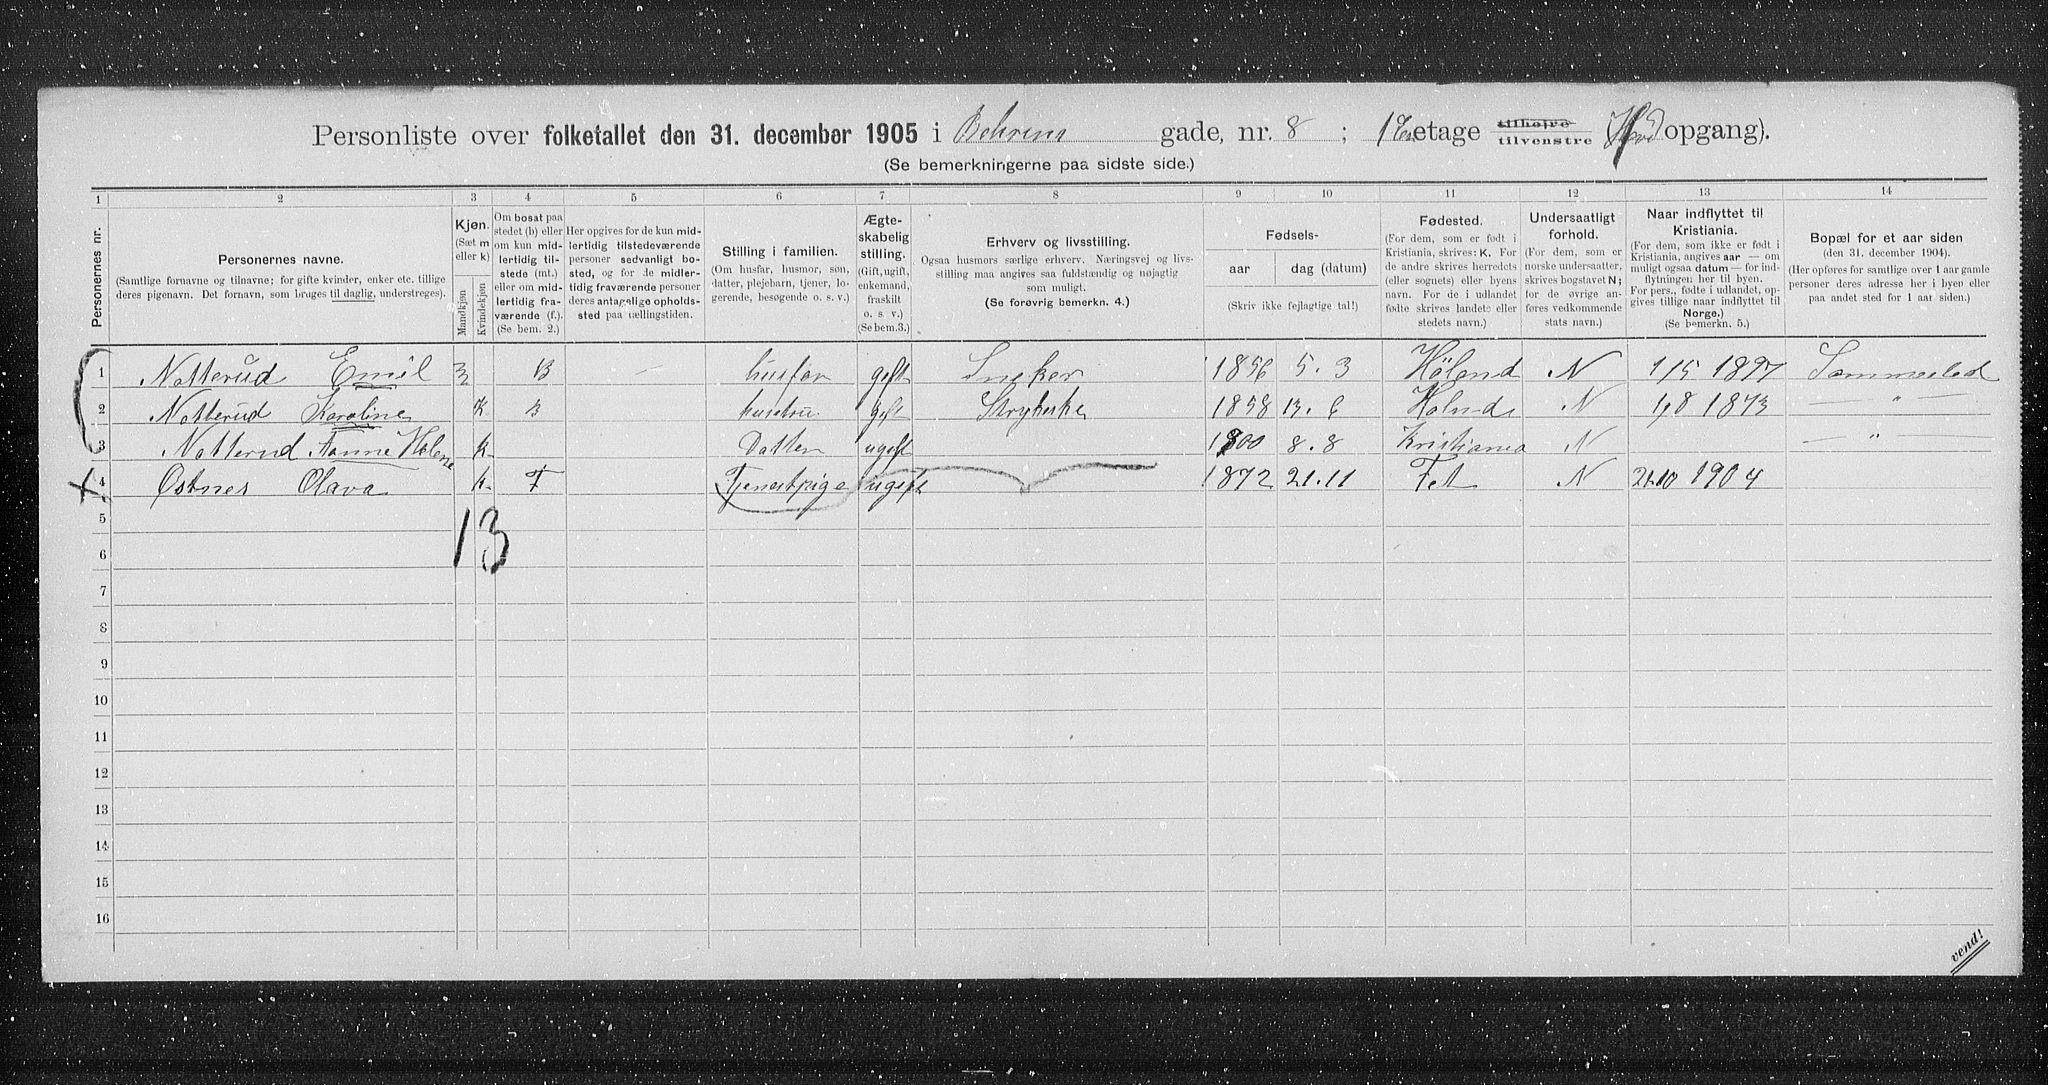 Personliste over folketallet den 31. december 1905 i Behrens gade, nr. 8; 1 etage tilhøjre tilvenstre ( opgang).
(Se bemerkningerne paa sidste side.)
1 2 3 4 5 6 7 8 9 10 11 12 13 14
Personernes nr.
Personernes navne.
(Samtlige fornavne og tilnavne; for gifte kvinder, enker etc. tillige
deres pigenavn. Det fornavn, som bruges til daglig, understreges).
Kjøn.
(Sæt m
eller k)
Mandkjøn
Kvindekjøn
Om bosat paa
stedet (b) eller
om kun mid-
lertidig til-
stede (mt.)
eller om mid-
lertidig fra-
værende (f.).
(Se bem. 2.)
Her opgives for de kun mid-
lertidig tilstedeværende
personer sedvanligt bo-
sted, og for de midler-
tidig fraværende personer
deres antagelige opholds-
sted paa tællingstiden.
Stilling i familien.
(Om husfar, husmor, søn,
datter, plejebarn, tjener, lo-
gerende, besøgende o. s. v.)
Ægte-
skabelig
stilling.
(Gift, ugift,
enkemand,
fraskilt
o. s. v.)
(Se bem. 3.)
Erhverv og livsstilling.
Ogsaa husmors særlige erhverv. Næringsvej og livs-
stilling maa angives saa fuldstændig og nøjagtig
som muligt.
(Se forøvrig bemerkn. 4.)
Fødsels-
aar
dag (datum)
(Skriv ikke fejlagtige tal!)
Fødested.
(For dem, som er født i
Kristiania, skrives: K. For
de andre skrives herredets
(eller sognets) eller byens
navn. For de i udlandet
fødte skrives landets eller
stedets navn.)
Undersaatligt
forhold.
(For dem, som er
norske undersaatter,
skrives bogstavet N;
for de øvrige an-
føres vedkommende
stats navn.)
Naar indflyttet til
Kristiania.
(For dem, som ikke er født i
Kristiania, angives aar — om
muligt ogsaa datum — for ind-
flytningen her til byen.
For pers., fødte i udlandet, op-
gives tillige naar indflyttet til
Norge.)
(Se bemerkn. 5.)
Bopæl for et aar siden
(den 31. december 1904).
(Her opføres for samtlige over 1 aar gamle
personer deres adresse her i byen eller
paa andet sted for 1 aar siden.)
1 Notterud Emil B — husfar gift Sneker 1856 5. 3 Höland N 1/5 1897 Sammested
2 Notterud Karoline K B hustru gift 1858 13. 6 N 1/8 1873 — " —
3 Notterud Anne Helene k Datter ugift 1900 8. 8 Kristiania N — " —
4 Østnes Olava k. F Tjenestpige ugift 1872 21. 11 Fet N 21.10 1904
5
13
6
7
8
9
10
11
12
13
14
15
16
vend!